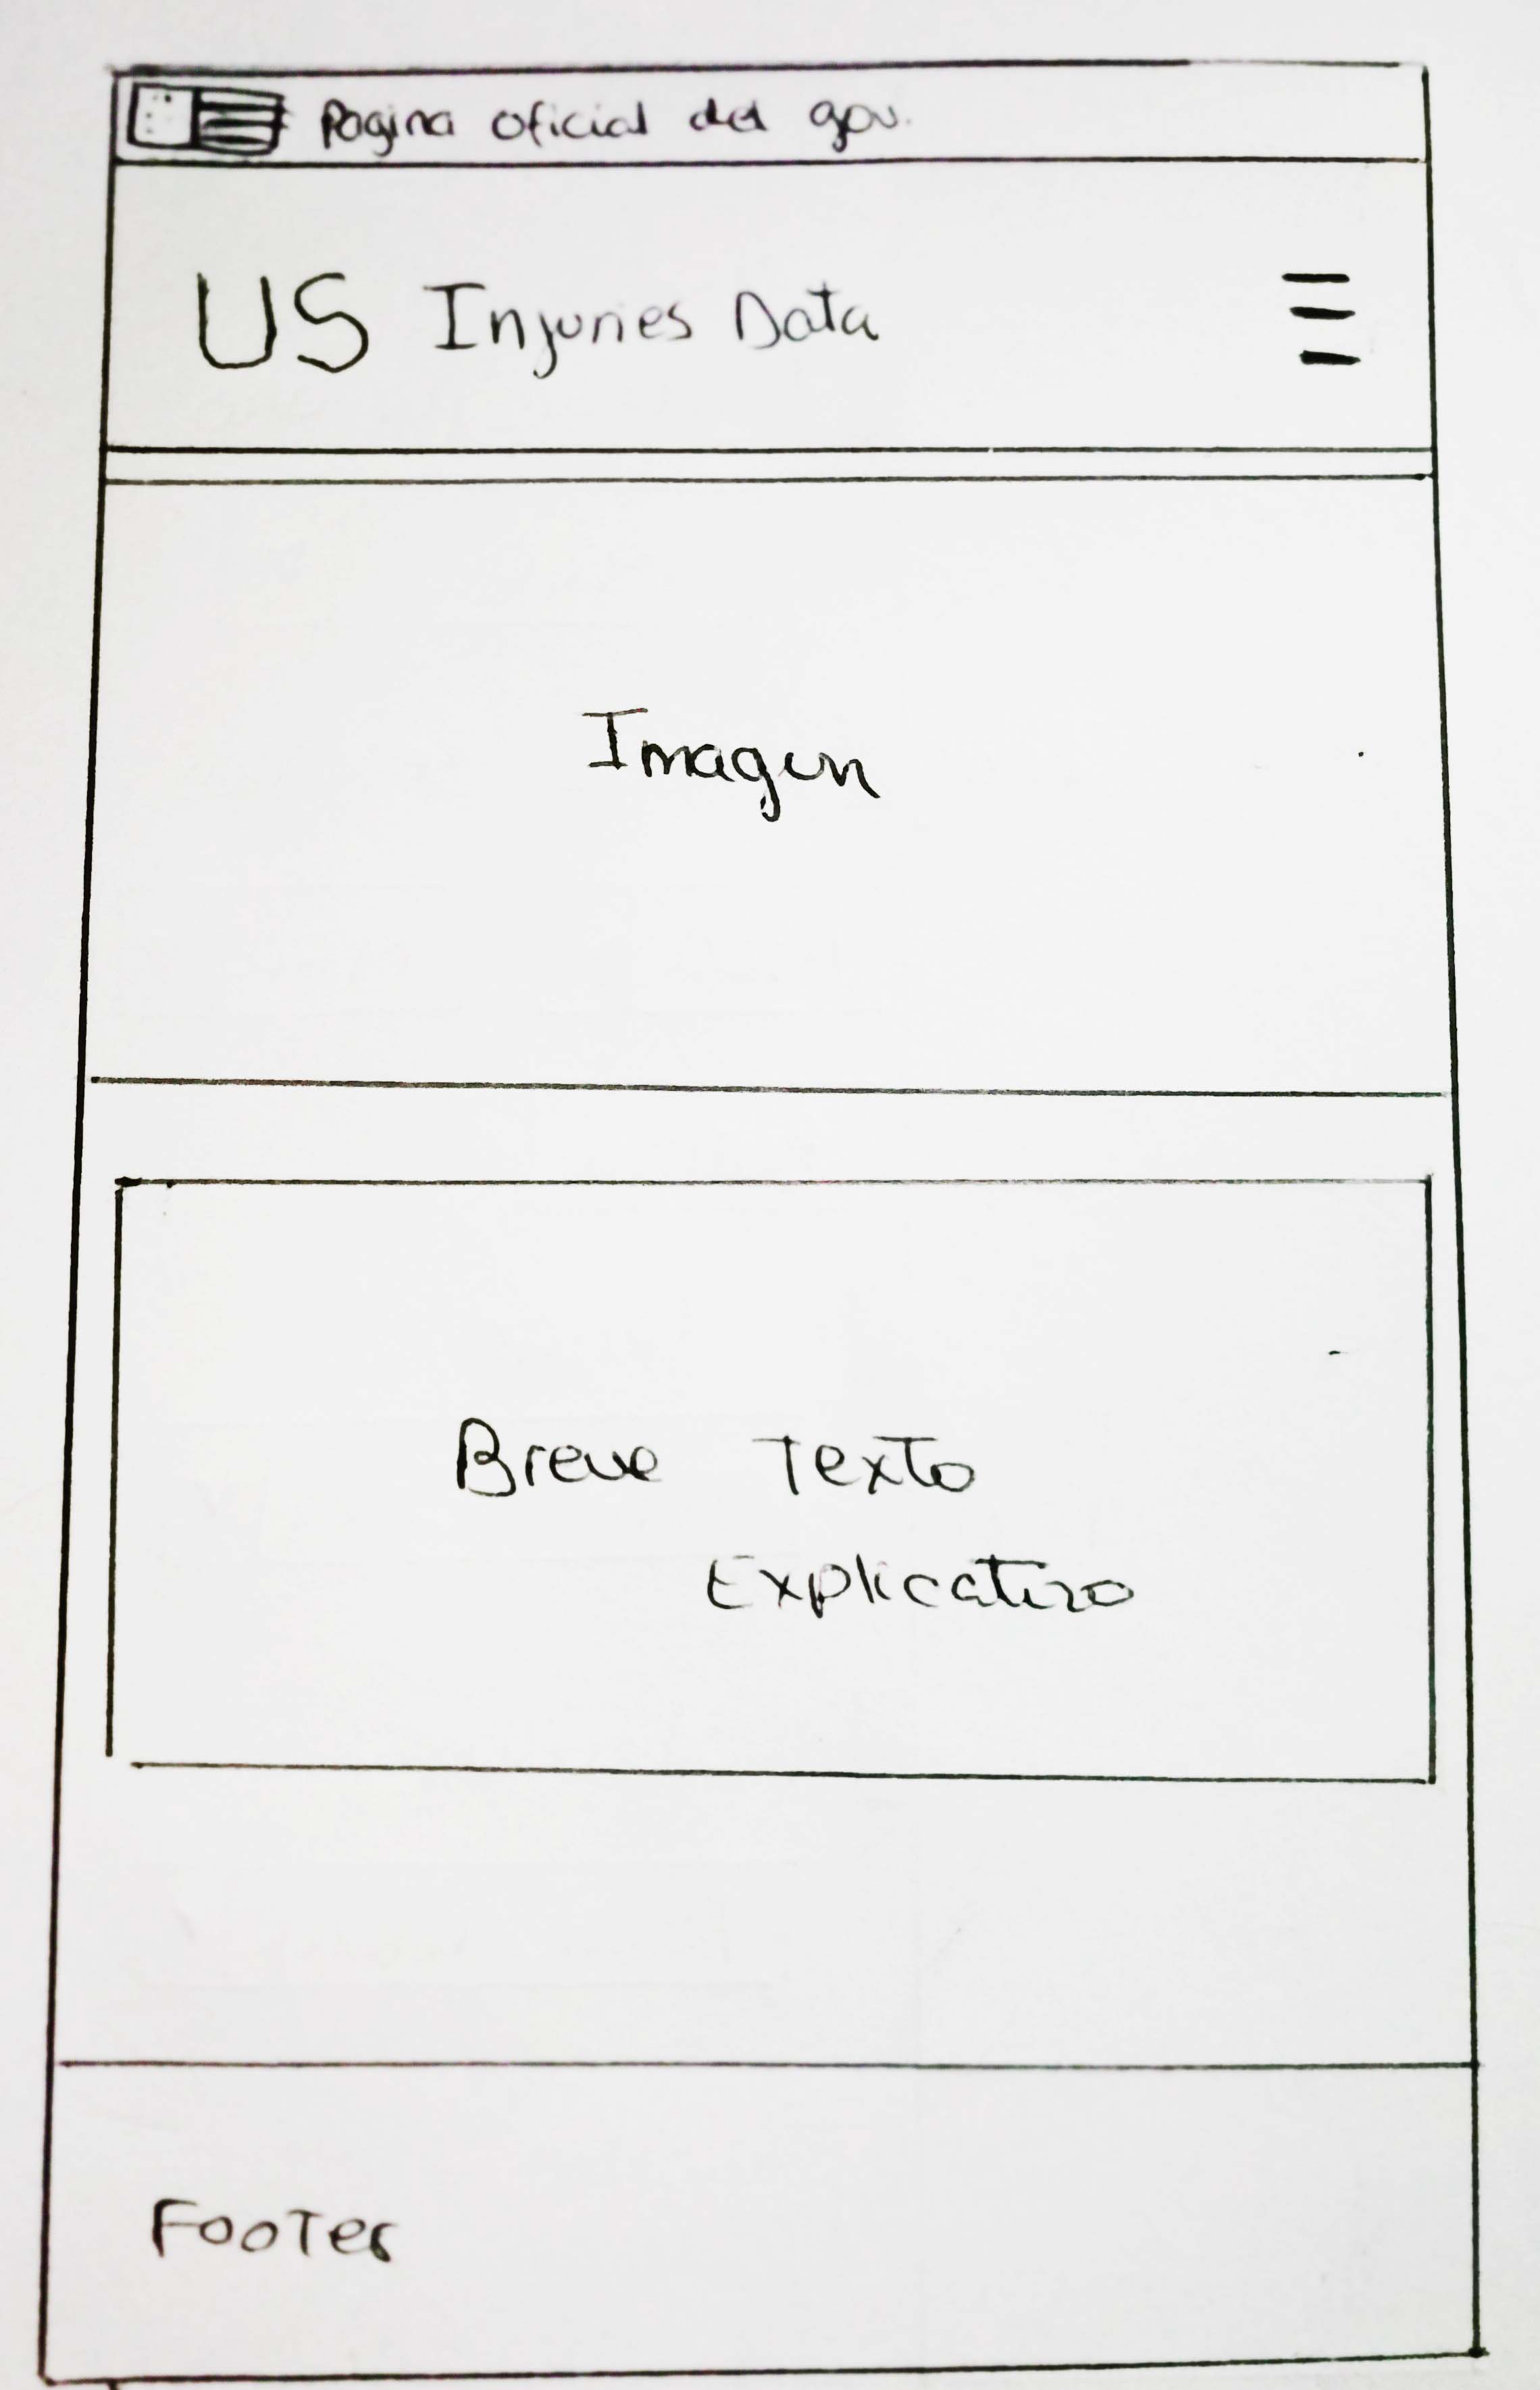 Pagina oficial del gov.
US Injuries Data
Imagen
Breve Texto
Explicativo
Footer